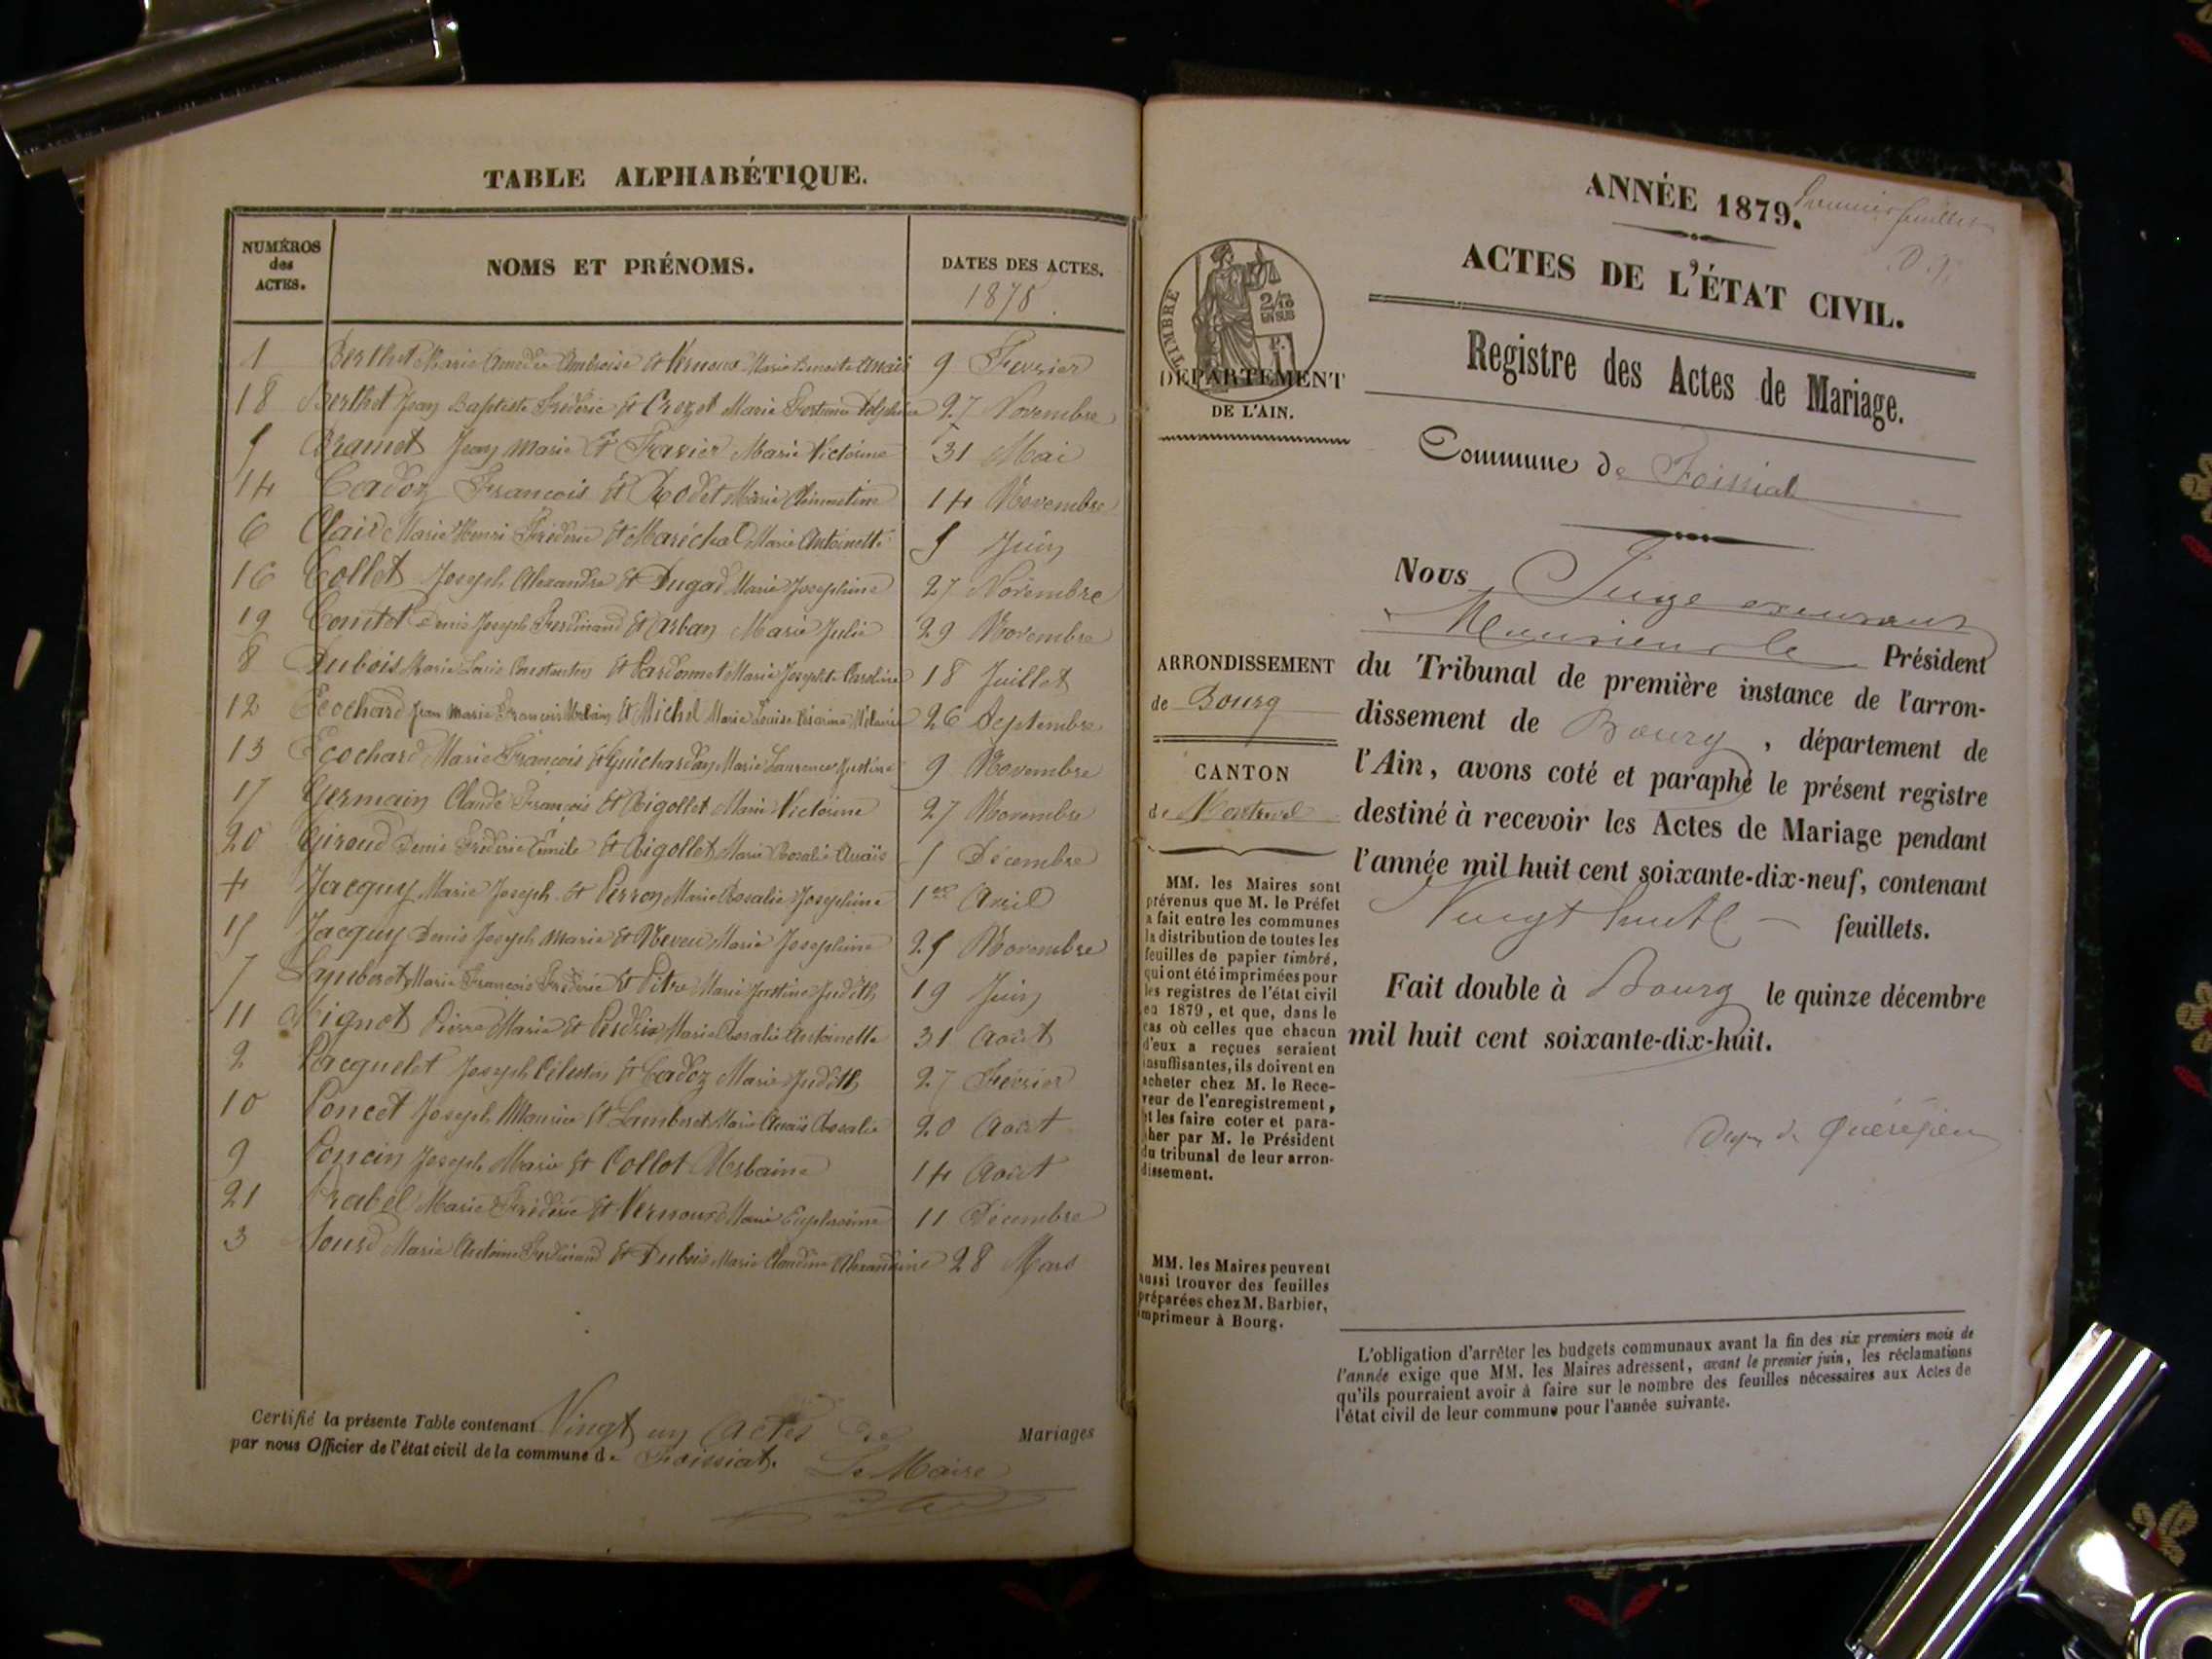 TABLE ALPHABÉTIQUE.
NUMÉROS des ACTES.
NOMS ET PRÉNOMS.
DATES DES ACTES.
1878.
1 Berthet Marie Amédée Ambroise Et Vernoux Marie Benoite Anaïs 9 Février
18 Berthet Jean Baptiste Frédéric Et Crozet Marie Fortunée Delphine 27 Novembre
5 Bramet Jean Marie Et Favier Marie Victorine 31 Mai
14 Cadoz François Et Rodet Marie Clémentine 14 Novembre
6 Clair Marie Henri Frédéric Et Maréchal Marie Antoinette 5 Juin
16 Collet Joseph Alexandre Et Dugad Marie Joséphine 27 Novembre
19 Comtet Denis Joseph Ferdinand Et Arban Marie Julie 29 Novembre
8 Dubois Marie Louis Constantin Et Pardonnet Marie Josephte Caroline 18 Juillet
12 Ecochard Jean Marie François Urbain Et Michel Marie Louise Césarine Mélanie 26 Septembre
13 Ecochard Marie François Et Guichardan Marie Laurence Justine 9 Novembre
17 Germain Claude François Et Rigollet Marie Victorine 27 Novembre
20 Giroud Denis Frédéric Emile Et Rigollet Marie Rosalie Anaïs 5 Décembre
4 Jacquy Marie Joseph Et Perron Marie Rosalie Joséphine 1er Avril
15 Jacquy Denis Joseph Marie Et Neveu Marie Joséphine 25 Novembre
7 Lamberet Marie François Frédéric Et Pitre Marie Justine Judith 19 Juin
11 Mignot Pierre Marie Et Perdrix Marie Rosalie Antoinette 31 Août
2 Pacquelet Joseph Célestin Et Cadoz Marie Judith 27 Février
10 Poncet Joseph Maurice Et Lamberet Marie Anaïs Rosalie 20 Août
9 Poncin Joseph Marie Et Collet Urbaine 14 Août
21 Prabel Marie Frédéric Et Vernoux Marie Euphrosine 11 Décembre
3 Sourd Marie Antoine Ferdinand Et Dubois Marie Claudine Alexandrine 28 Mars
Certifié la présente Table contenant Vingt un Actes de Mariages
par nous Officier de l'état civil de la commune de Foissiat.
Le Maire
ANNÉE 1879.
Premier feuillet
ACTES DE L'ÉTAT CIVIL.
TIMBRE
2/10 EN SUS
DÉPARTEMENT
DE L'AIN.
Registre des Actes de Mariage.
Commune de Foissiat
ARRONDISSEMENT
de Bourg
CANTON
de Montrevel
MM. les Maires sont
prévenus que M. le Préfet
a fait entre les communes
la distribution de toutes les
feuilles de papier timbré,
qui ont été imprimées pour
les registres de l'état civil
en 1879, et que, dans le
cas où celles que chacun
d'eux a reçues seraient
insuffisantes, ils doivent en
acheter chez M. le Rece-
veur de l'enregistrement,
et les faire coter et para-
pher par M. le Président
du tribunal de leur arron-
dissement.
MM. les Maires peuvent
aussi trouver des feuilles
préparées chez M. Barbier,
imprimeur à Bourg.
Nous Juge
Monsieur le Président
du Tribunal de première instance de l'arron-
dissement de Bourg, département de
l'Ain, avons coté et paraphé le présent registre
destiné à recevoir les Actes de Mariage pendant
l'année mil huit cent soixante-dix-neuf, contenant
Vingt huit feuillets.
Fait double à Bourg le quinze décembre
mil huit cent soixante-dix-huit.
L'obligation d'arrêter les budgets communaux avant la fin des six premiers mois de
l'année exige que MM. les Maires adressent, avant le premier juin, les réclamations
qu'ils pourraient avoir à faire sur le nombre des feuilles nécessaires aux Actes de
l'état civil de leur commune pour l'année suivante.